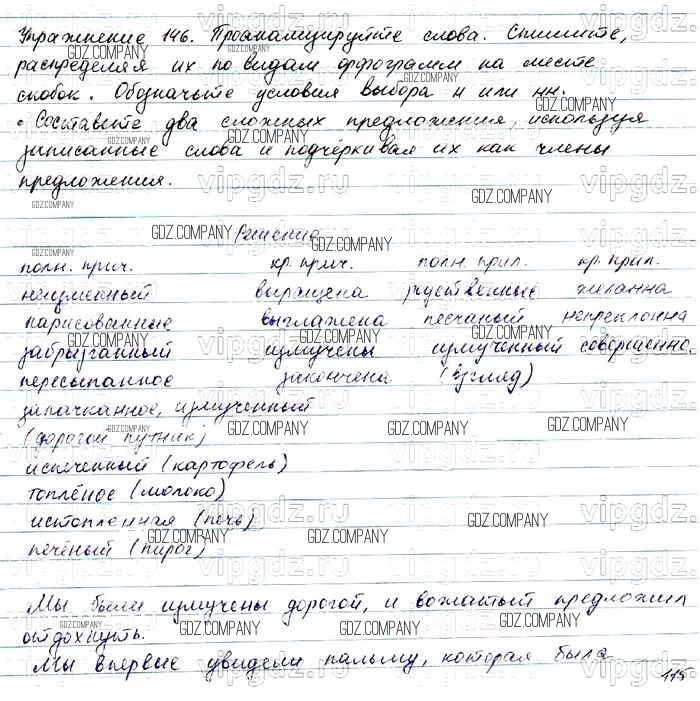 Упражнение 146. Проанализируйте слова. Спишите,
распределяя их по видам орфограмм на месте
скобок. Обозначьте условия выбора н или нн.
• Составьте два сложных предложения, используя
записанные слова и подчёркивая их как члены
предложения.
Решение
полн. прич. кр. прич. полн. прил. кр. прил.
неизменный выращена искусственные желанна
нарисованные выглажена песчаный непреклонна
забрызганный измучены измученный совершенно.
пересыпанное закончена (взгляд)
запачканное, измученный
(дорогой путник)
испеченный (картофель)
топлёное (молоко)
истопленная (печь)
печёный (пирог)
Мы были измучены дорогой, и вожатый предложил
отдохнуть.
Мы впервые увидели пальму, которая была
115
GDZ.COMPANY
vipgdz.ru